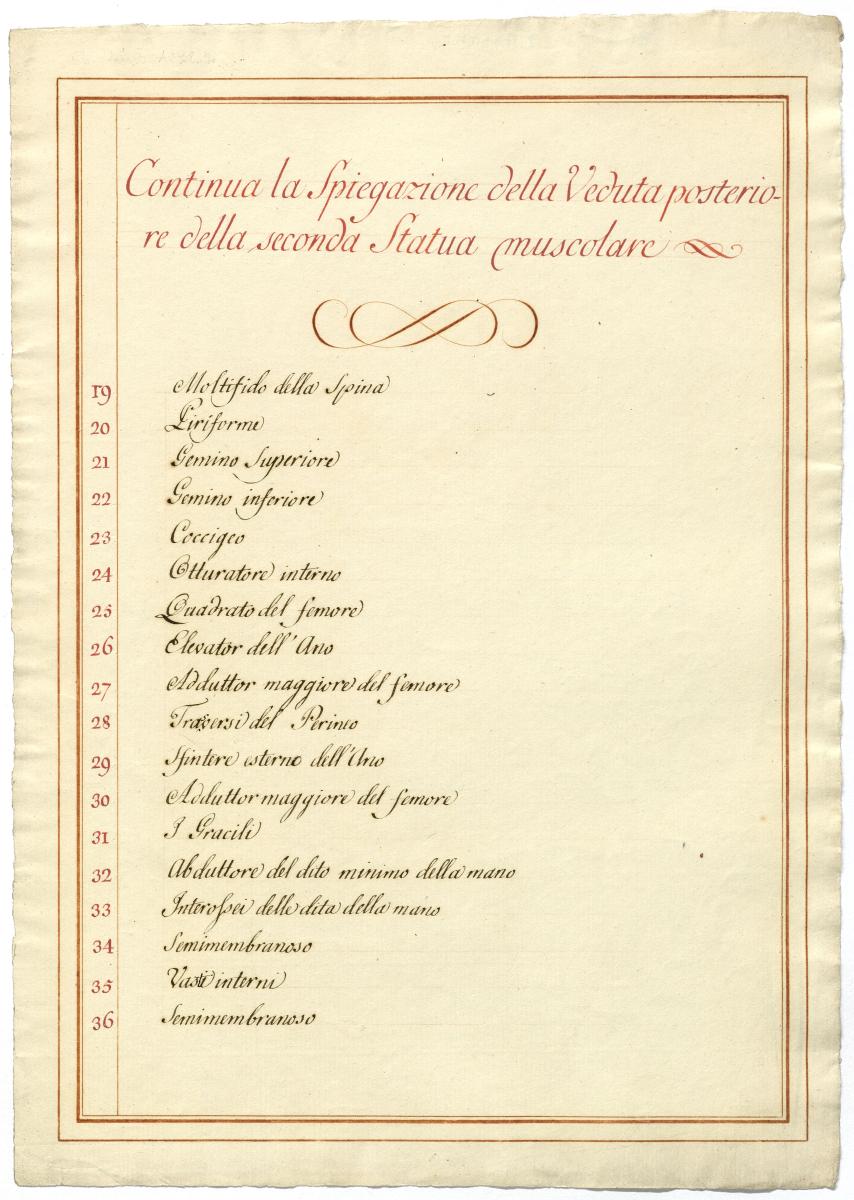 Continua la Spiegazione della Veduta posterio-
re della seconda Statua muscolare
19 Moltifido della Spina
20 Piriforme
21 Gemino Superiore
22 Gemino inferiore
23 Coccigeo
24 Otturatore interno
25 Quadrato del femore
26 Elevator dell'Ano
27 Adduttor maggiore del femore
28 Traversi del Perineo
29 Sfintere esterno dell'Ano
30 Adduttor maggiore del femore
31 I Gracili
32 Abduttore del dito minimo della mano
33 Interossei delle dita della mano
34 Semimembranoso
35 Vasti interni
36 Semimembranoso